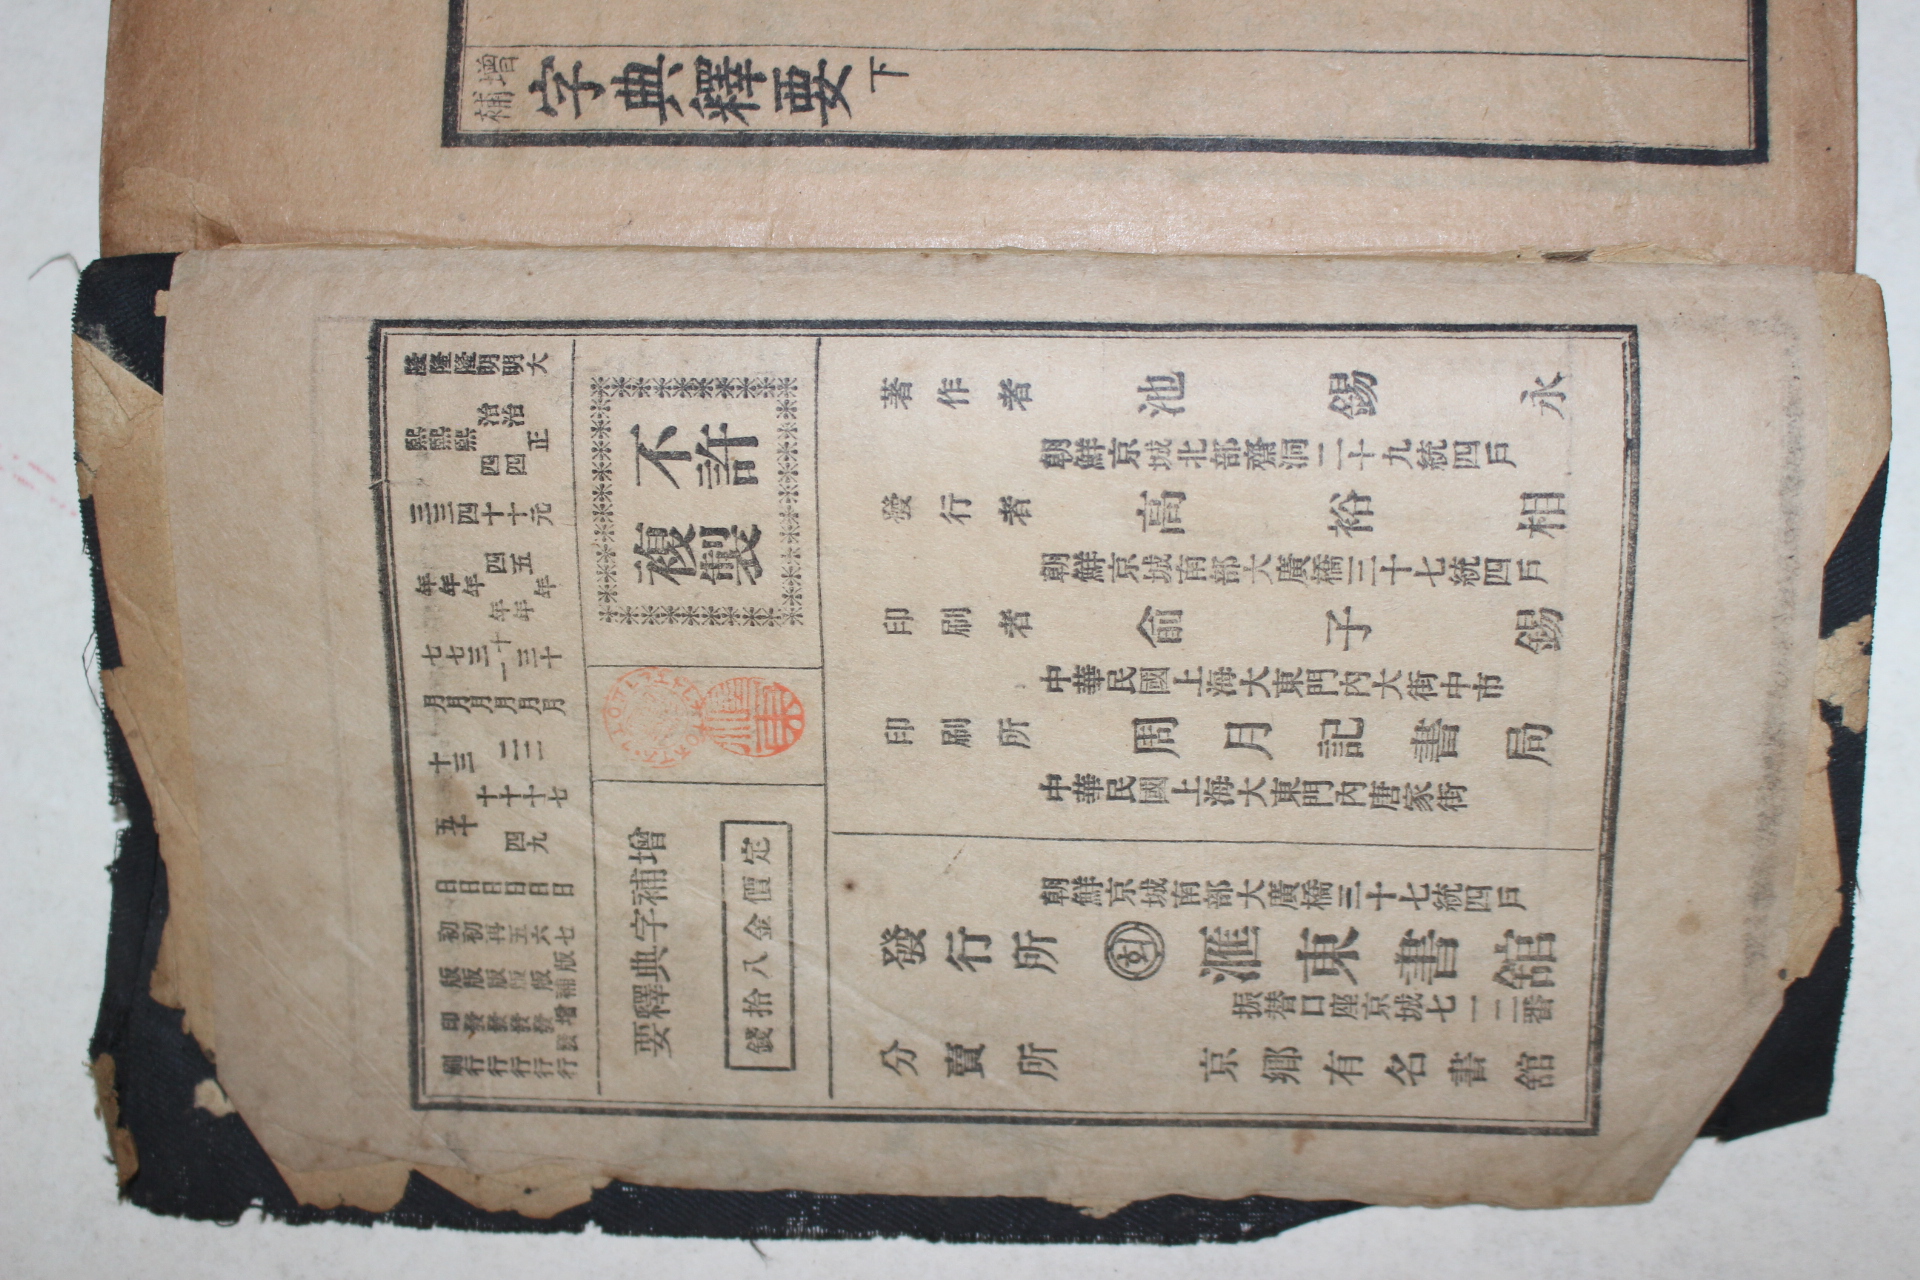 增補 字典釋要 下
隆熙三年七月十五日初版印刷
隆熙三年七月三十日初版發行
隆熙四年三月十日再版發行
明治四十四年十一月二十四日五版發行
明治四十五年三月二十九日六版發行
大正元年十月七日七版補增發行
不許
複製
增補字典釋要
定價金八拾錢
著作者 池錫永
朝鮮京城北部齋洞二十九統四戶
發行者 高裕相
朝鮮京城南部大廣橋三十七統四戶
印刷者 俞子錫
中華民國上海大東門內大街中市
印刷所 周月記書局
中華民國上海大東門內唐家街
朝鮮京城南部大廣橋三十七統四戶
發行所 회 滙東書舘
振替口座京城七一二番
分賣所 京鄉有名書舘